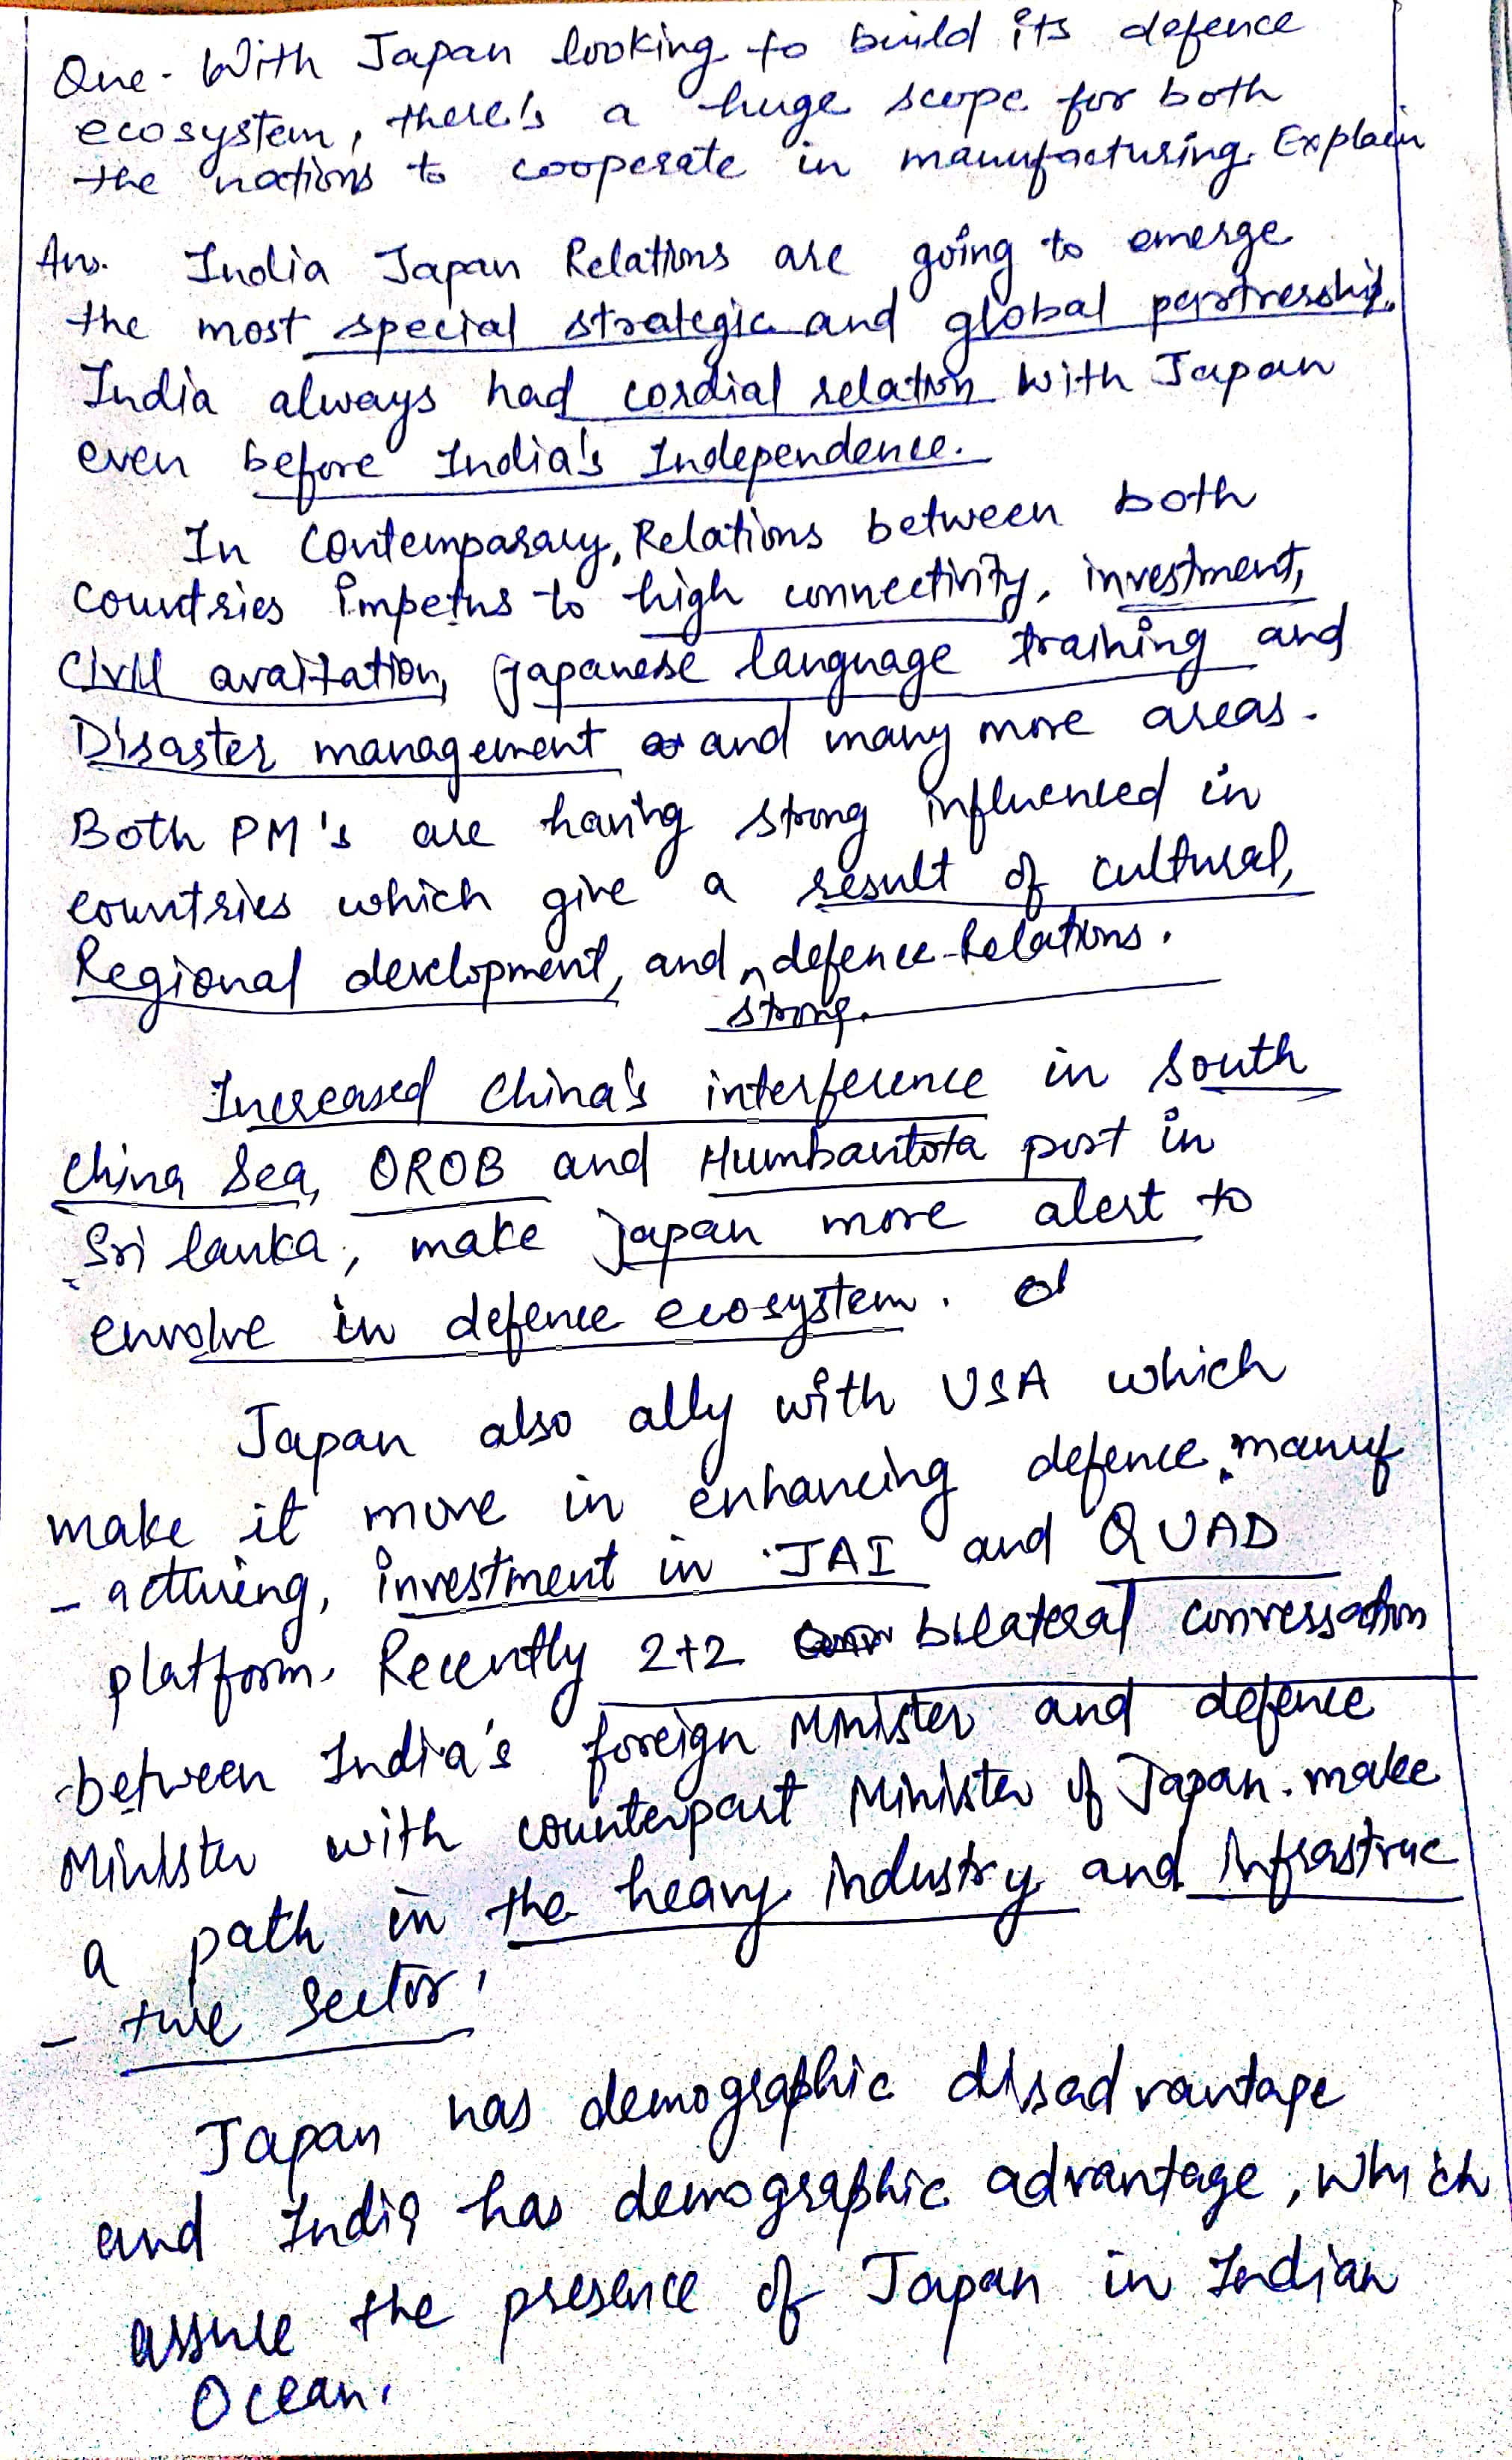 Que- With Japan looking to build its defence
ecosystem, there's a huge scope for both
the nations to cooperate in manufacturing. Explain
Ans. India Japan Relations are going to emerge
the most special strategic and global partnership.
India always had cordial relation with Japan
even before India's Independence.
In Contemparary, Relations between both
countries impetus to high connectivity, investment,
Civil avaitation, japanese language training and
Disaster management and many more areas.
Both PM's are having strong influenced in
countries which give a result of cultural,
Regional development, and defence Relations.
strong.
Increased China's interference in South
China Sea, OROB and Humbantota port in
Sri lanka, make japan more alert to
envolve in defence ecosystem.
Japan also ally with USA which
make it more in enhancing defence manuf
- acturing, investment in JAI and QUAD
platform. Recently 2+2 bilateral conversation
between India's foreign Minister and defence
Minister with counterpart Minister of Japan. make
a path in the heavy industry and Infrastruc
- ture Sector.
Japan has demographic disadvantage
and India has demographic advantage, which
assure the presence of Japan in Indian
Ocean.